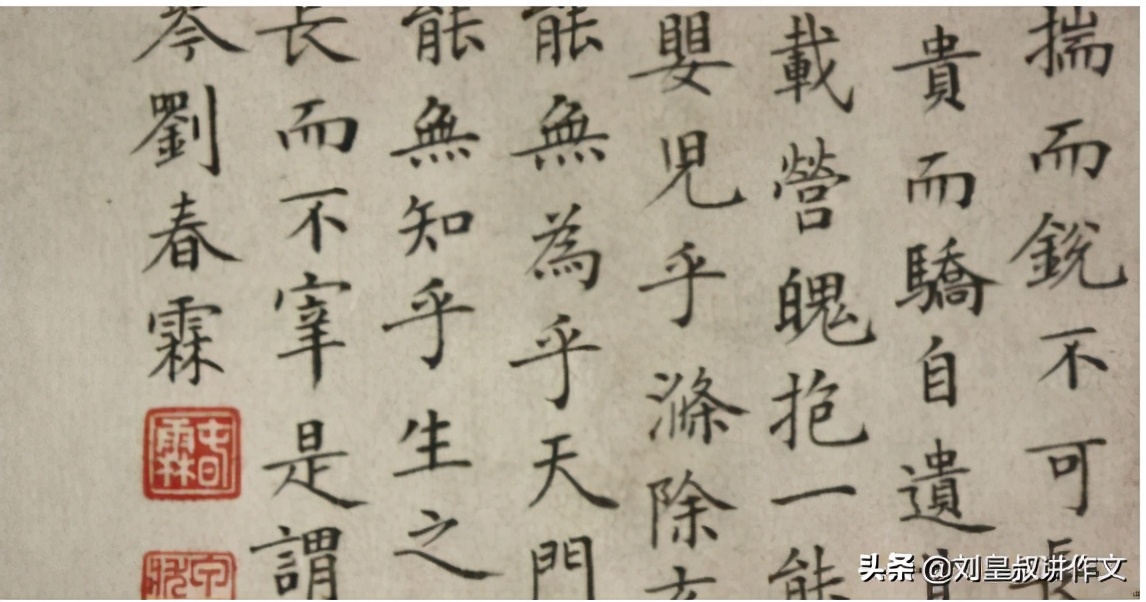 揣而銳不可長
貴而驕自遺
載營魄抱一能
嬰兒乎滌除玄
能無為乎天門
能無知乎生之
長而不宰是謂
劉春霖
頭条 @刘皇叔讲作文